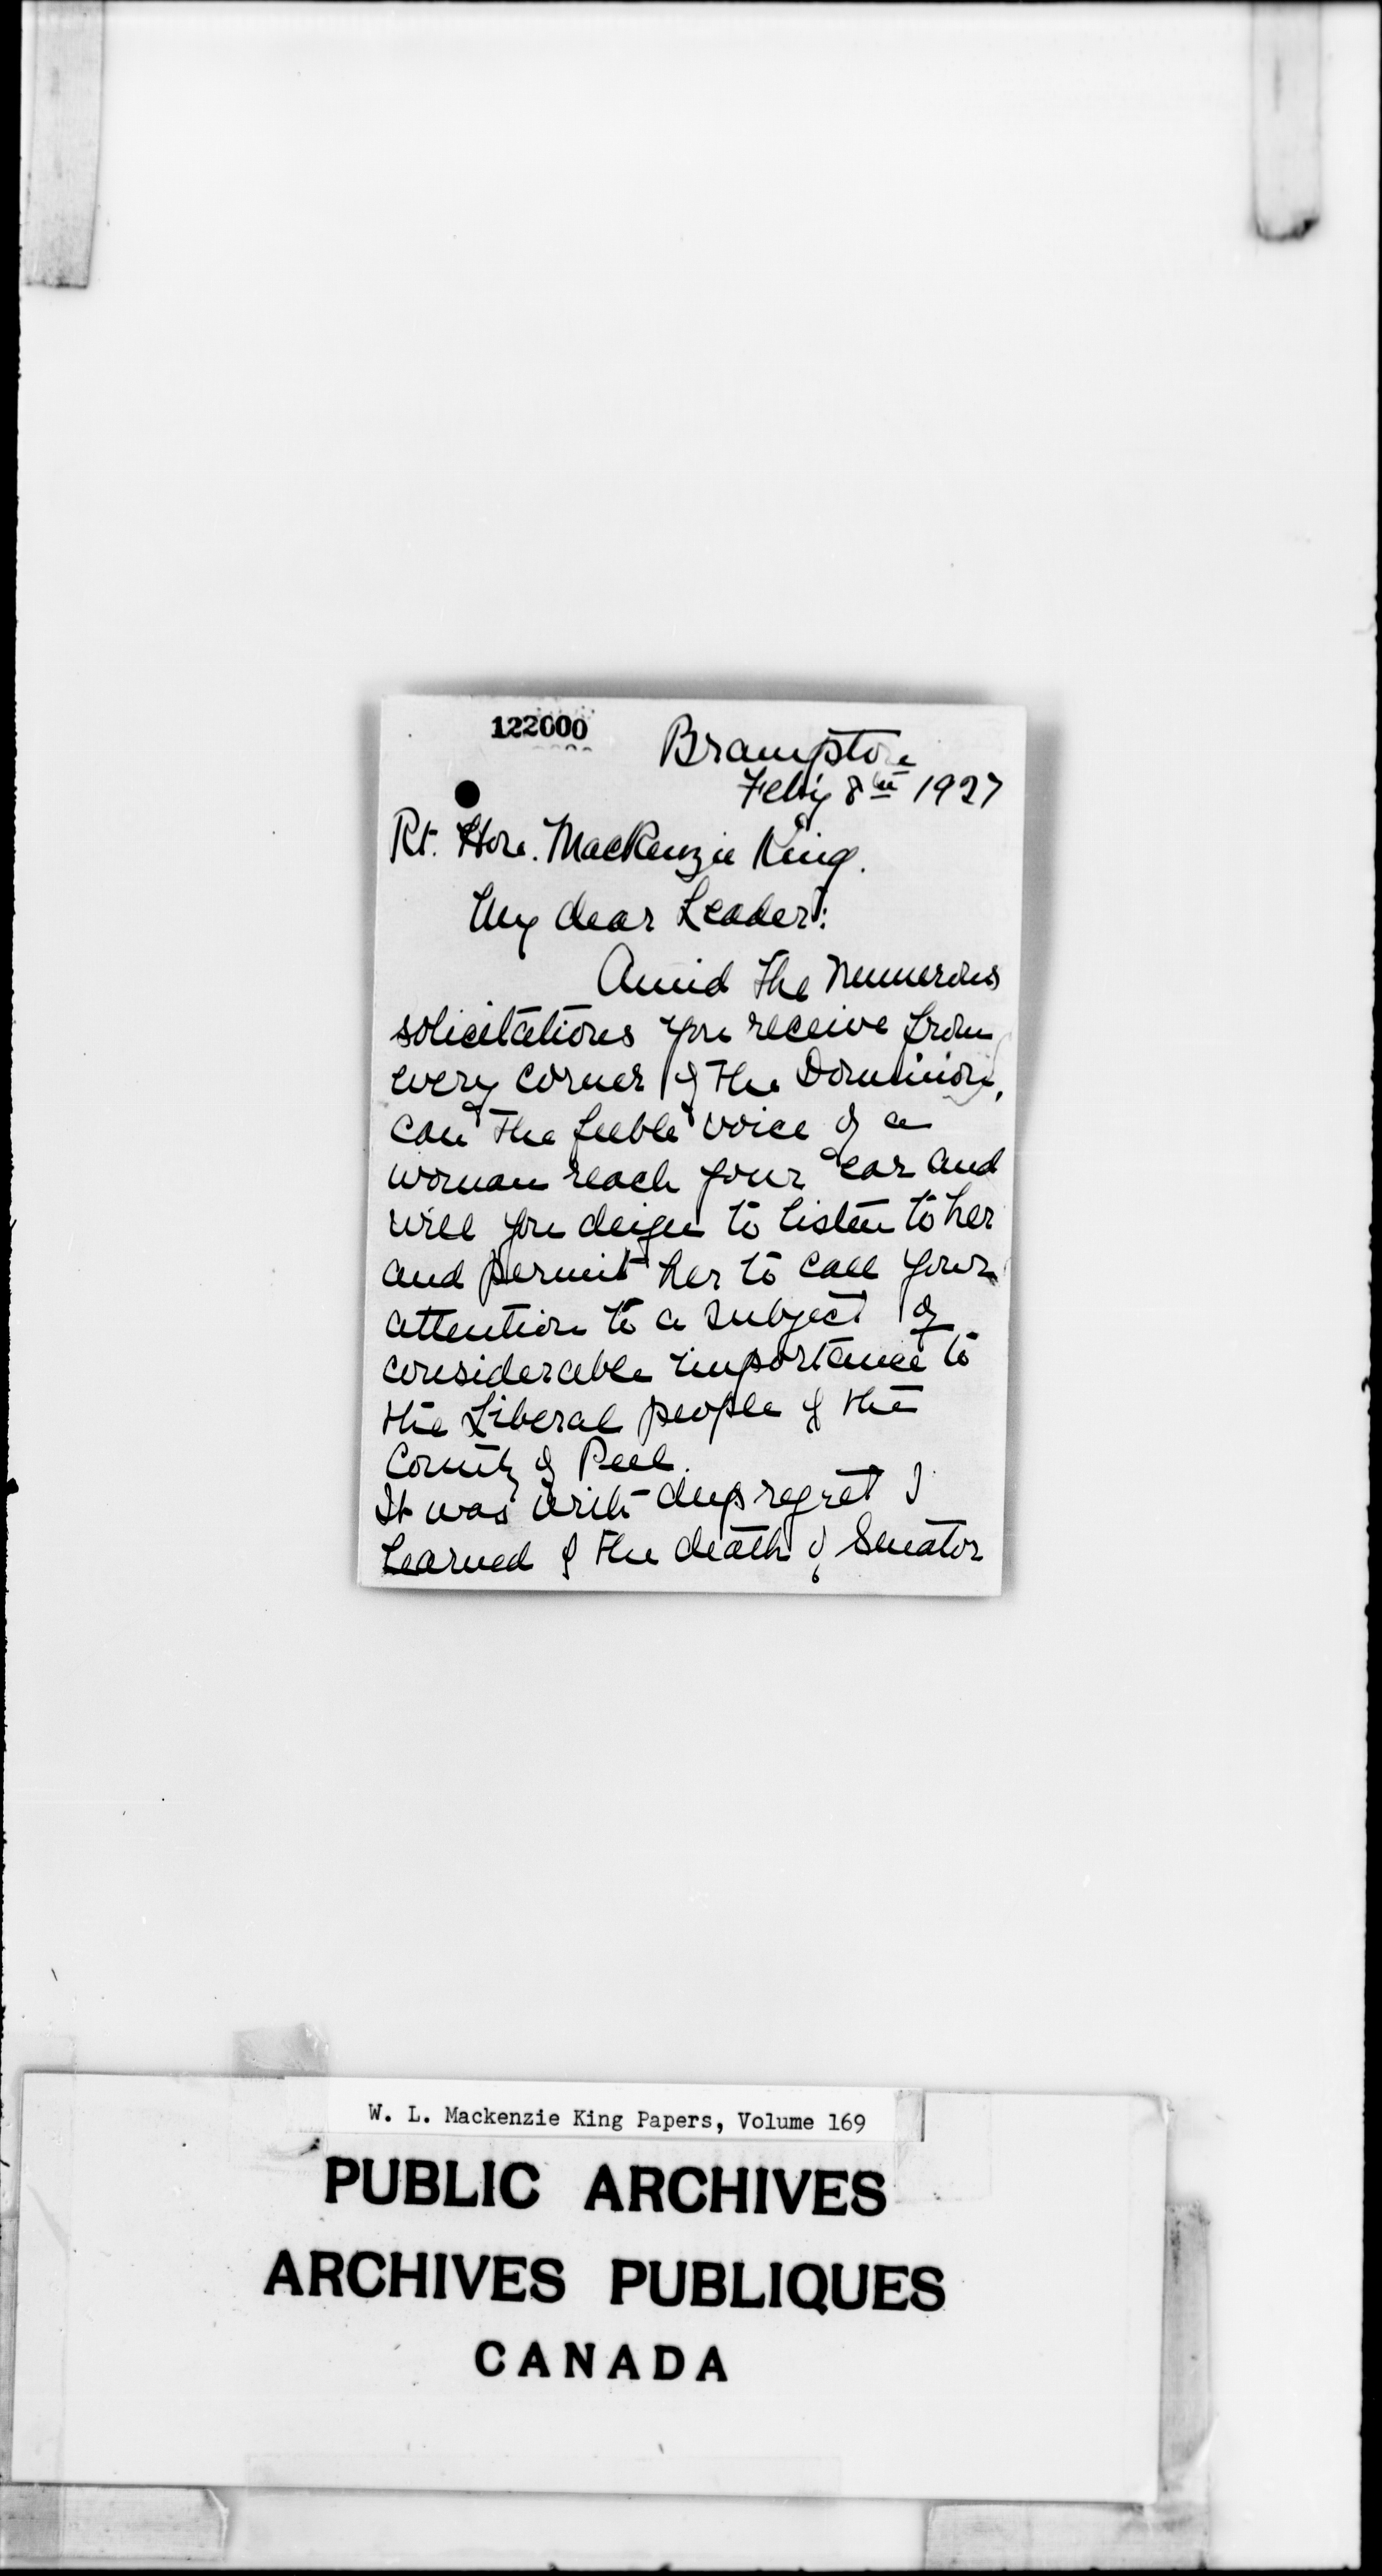 122000
Brampton
Feb'y 8th 1927
Rt. Hon. MacKenzie King.
My dear Leader:
Amid the numerous
solicitations you receive from
every corner of the Dominion,
can the feeble voice of a
woman reach your ear and
will you deign to listen to her
and permit her to call your
attention to a subject of
considerable importance to
the Liberal people of the
County of Peel.
It was with deep regret I
learned of the death of Senator
W. L. Mackenzie King Papers, Volume 169
PUBLIC ARCHIVES
ARCHIVES PUBLIQUES
CANADA